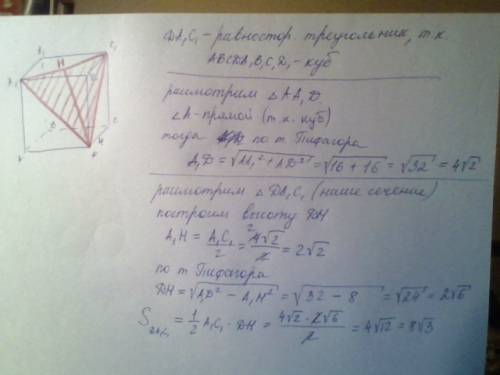 DA₁C₁ - равностор. треугольник, т.к.
ABCDA₁B₁C₁D₁ - куб
рассмотрим △AA₁D
∠A - прямой (т.к. куб)
тогда по т Пифагора
A₁D = √AA₁² + AD² = √16 + 16 = √32 = 4√2
рассмотрим △DA₁C₁ (наше сечение)
построим высоту DH
A₁H = A₁C₁/2 = 4√2/2 = 2√2
по т Пифагора
DH = √A₁D² - A₁H² = √32 - 8 = √24 = 2√6
S DA₁C₁ = 1/2 A₁C₁ · DH = 4√2 · 2√6/2 = 4√12 = 8√3
H
A₁
C₁